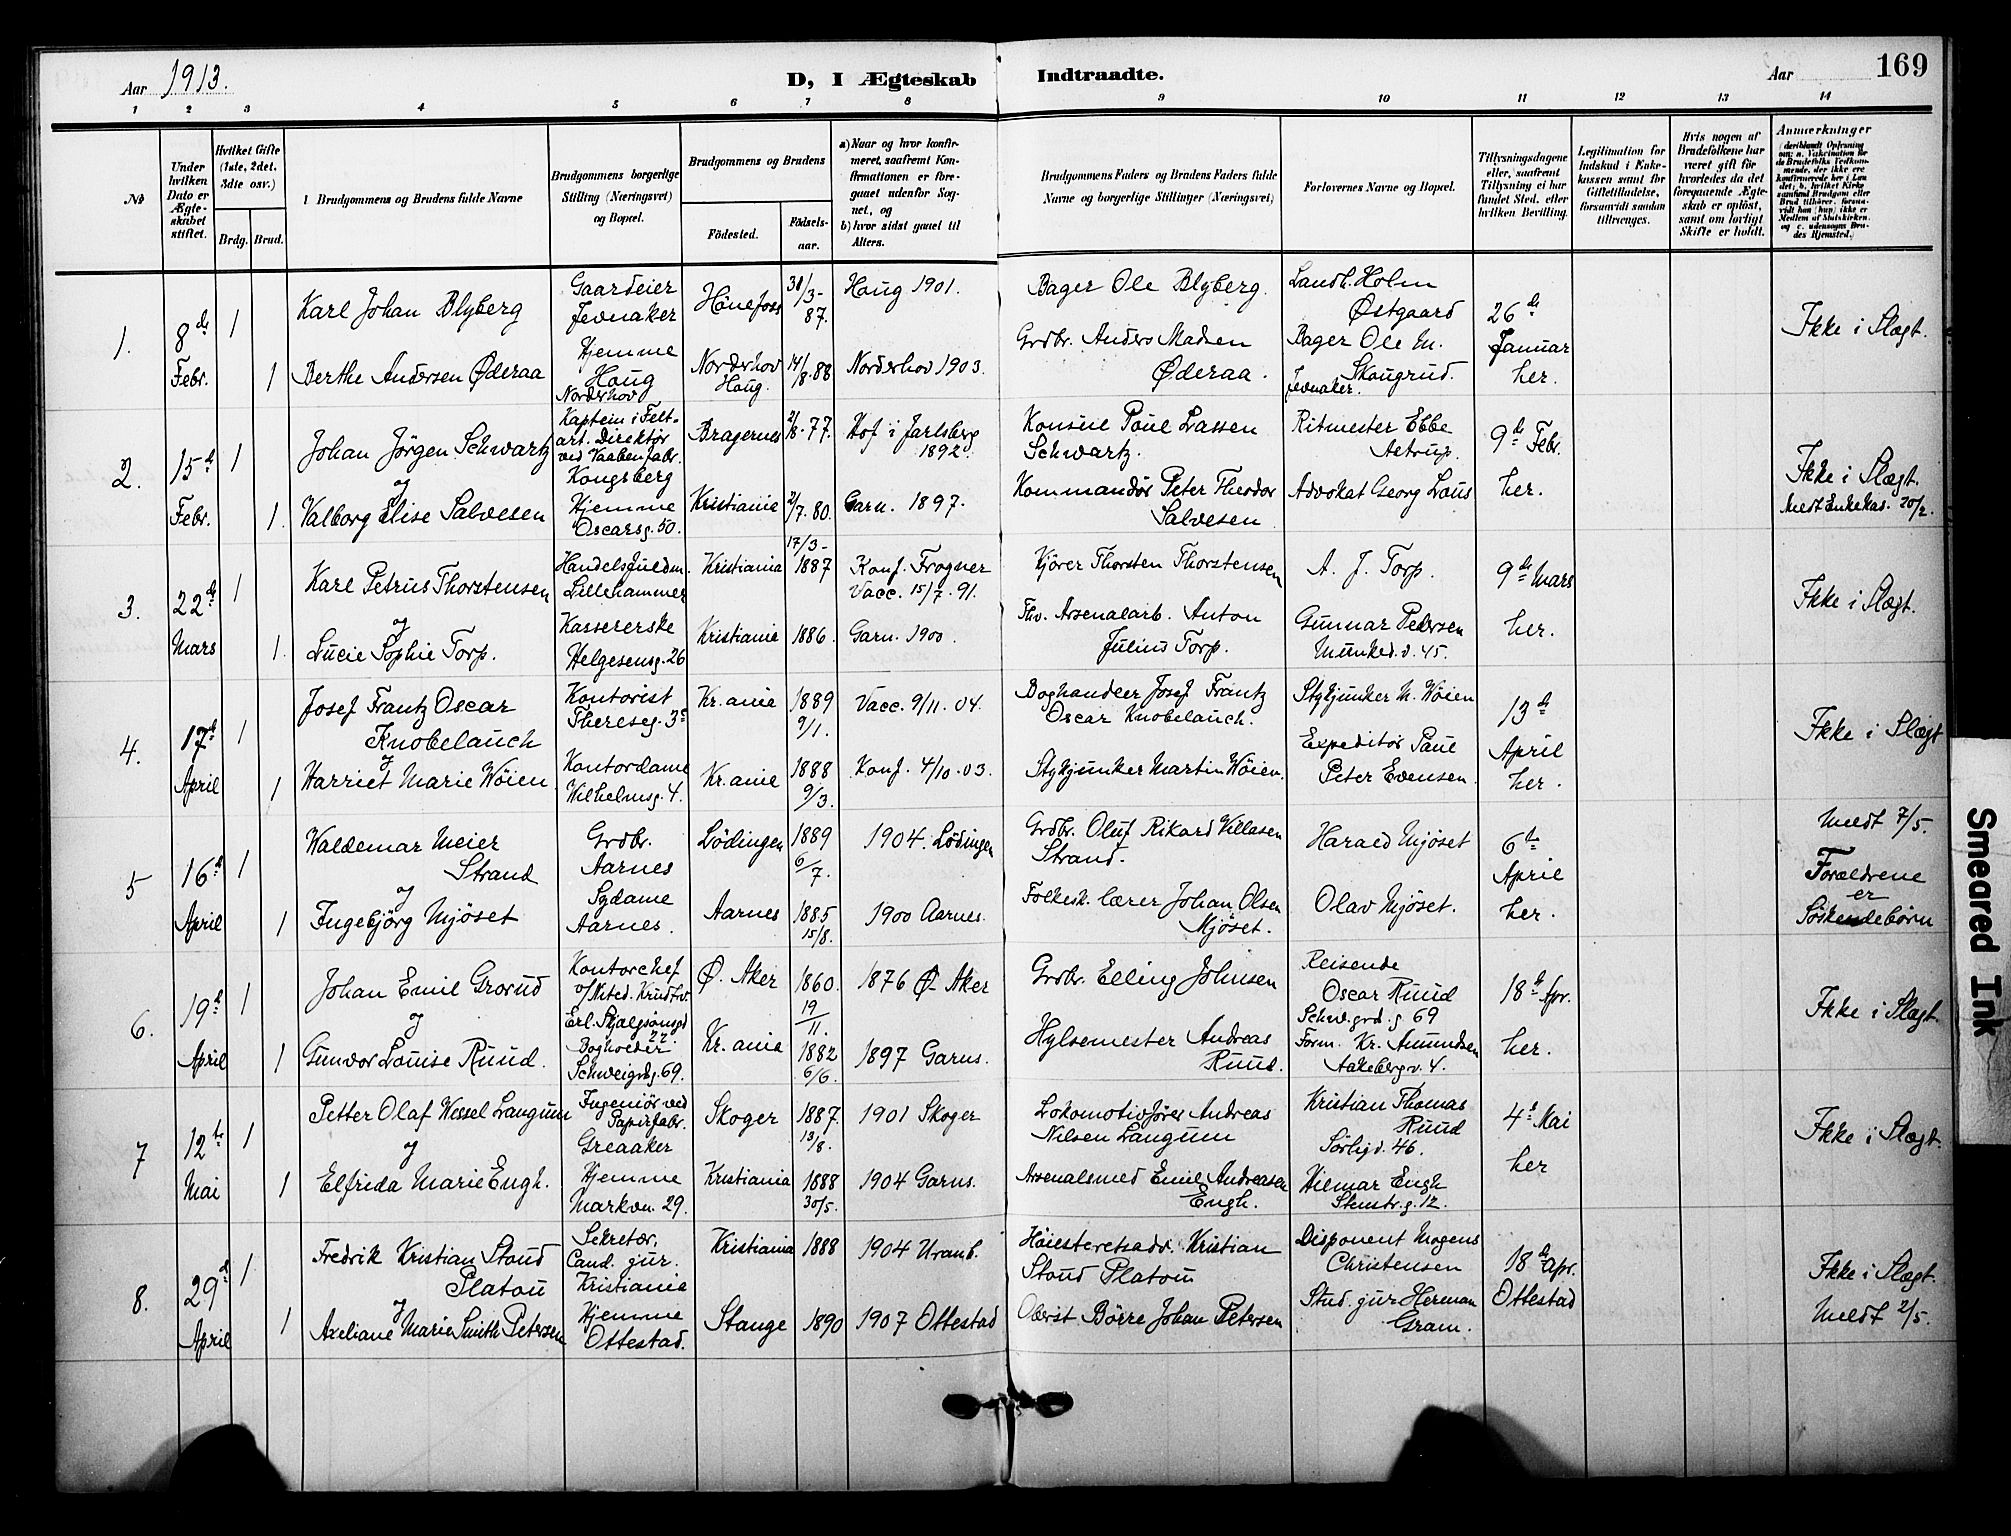 Aar 1913.
D, I Ægteskab Indtraadte.
Aar 169
1 2 3 4 5 6 7 8 9 10 11 12 13 14
No
Under hvilken Dato er Ægteskabet stiftet.
Hvilket Gifte (1ste, 2det, 3die osv.)
Brdg. Brud.
1 Brudgommens og Brudens fulde Navne
Brudgommens borgerlige Stilling (Næringsvei) og Bopæl.
Brudgommens og Brudens
Födested. Födselsaar.
a) Naar og hvor konfirmeret, saafremt Konfirmationen er foregaaet udenfor Sognet, og
b) hvor sidst gaaet til Alters.
Brudgommens Faders og Brudens Faders fulde Navne og borgerlige Stillinger (Næringsvei)
Forlovernes Navne og Bopæl.
Tillysningsdagene eller, saafremt Tillysning ei har fundet Sted, efter hvilken Bevilling.
Legitimation for Indskud i Enkekassen samt for Giftetilladelse, forsaavidt saadan tiltrænges.
Hvis nogen af Brudefolkene har været gift før hvorledes da det foregaaende Ægteskab er opløst, samt om lovligt Skifte er holdt.
Anmærkninger
(deriblandt Oplysning om: a. Vakcination for da Brudefolks Vedkommende, der ikke ere konfirmerede her i Landet; b. hvilket Kirkesamfund Brudgom eller Brud tilhører, forsaavidt han (hun) ikke er Medlem af Statskirken, og c. udensogns Brudes Hjemsted.)
1. 8de Febr. 1 Karl Johan Blyberg Gaardeier Jevnaker Hönefoss 31/3-87. Houg 1901. Bager Ole Blyberg. Landh. Holm Østgaard 26de Januar her. Ikke i Slægt.
1 Berthe Andersen Øderaa Hjemme Houg Norderhov Norderhov Houg. 14/8-88 Norderhov 1903. Grdbr. Anders Madsen Øderaa. Bager Ole M. Skougrud. Jevnaker.
2. 15de Febr. 1 Johan Jörgen Schwartz og Kaptein i Feltart. Direktör ved Vaabenfabr. Kongsberg Bragernes 2/8-77. Hof i Jarlsberg 1892. Konsul Poul Lassen Schwartz. Ritmester Ebbe Astrup. 9de Febr. her. Ikke i Slægt. Meldt Enkekas. 20/2.
1. Valborg Elise Salvesen Hjemme Oscarsg. 50. Kristiania 2/7.80. Garn. 1897. Kommandör Peter Theodor Salvesen Advokat Georg Lous
3. 22de Mars 1 Karl Petrus Thorstensen og Handelsfuldm. Lillehammer Kristiania 17/3-1887 Konf. Frogner Vacc. 15/7.91. Kjörer Thorsten Thorstensen A. J. Torp. 9de Mars her. Ikke i Slægt.
1. Lucie Sophie Torp. Kassererske Helgesensg. 26 Kristiania 1886. Garn. 1900. Fhv. Arsenalarb. Anton Julius Torp. Gunnar Pedersen Munked.v. 45.
4. 17de April 1 Josef Frantz Oscar Knobelauch og Kontorist Thereseg. 3c Kr.ania 1889 9/1. Vacc. 9/11.04. Boghandler Josef Frantz Oscar Knobelauch. Stykjunker M. Wöien 13de April her. Ikke i Slægt
1 Harriet Marie Wöien Kontordame Wilhelmsg. 4. Kr.ania 1888 9/3. Konf. 4/10.03. Stykjunker Martin Wöien. Expeditör Paul Peter Evensen.
5 16de April 1 Waldemar Meier Strand og Grdbr. Aarnes Lödingen 1889 6/7. 1904. Lödingen Grdbr. Oluf Rikard Villasen Strand. Harald Mjöset 6te April her. Meldt 7/5. Forældrene er Söskendebörn
1 Ingebjörg Mjöset Sydame Aarnes. Aarnes 1885 15/8. 1900 Aarnes. Folkesk. lærer Johan Olsen Mjöset. Olav Mjöset.
6. 19de April 1 Johan Emil Grorud og Kontorchef v/Nited. Krudtv. Erl. Skjalgsönsgd 22. Ø. Aker 1860. 19/11. 1876 Ø. Aker Grdbr. Elling Johnsen Reisende Oscar Ruud Schw.grd.g 69 18de Apr. her. Ikke i Slægt.
1 Gunvor Louise Ruud. Bogholder Schweigrdsg. 69. Kr.ania 1882 6/6. 1897 Garns. Hylsemester Andreas Ruud. Form. Kr. Amundsen Aakebergv. 4.
7 12te Mai 1 Petter Olaf Wessel Langum og Ingeniör ved Papirfabr. Greaaker Skoger 1887. 13/8. 1901 Skoger Lokomotivförer Andreas Nilsen Langum Kristian Thomas Ruud Sörligd. 46. 4de Mai her Ikke i Slægt.
1 Elfrida Marie Engh. Hjemme Markvn. 29. Kristiania 1888 30/5. 1904 Garns. Arsenalsmed Emil Andreasen Engh. Hilmar Engh Stenstr.g. 12.
8. 29de April 1 Fredrik Kristian Stoud Platou og Sekretær, Cand. jur. Kristiania Kristiania 1888 1904 Uranb. Höiesteretsadv. Kristian Stoud Platou Disponent Mogens Christensen 18de Apr. Ottestad Ikke i Slægt. Meldt 2/5.
1 Axeliane Marie Smith Petersen Hjemme Ottestad. Stange 1890 1907 Ottestad Oberst Börre Johan Petersen Stud. jur Herman Gram.
Smeared Ink